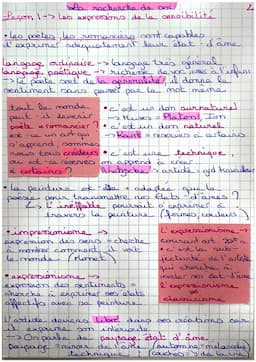 La recherche de soi
Leçon 1 -> Les expressions de la sensibilité
• les poètes, les romanciers sont capables
d'exprimer adéquatement leur état d'âme
langage ordinaire -> langage très général
langage poétique -> nuance
-> Le poète sort de la généralité, il donne un
sentiment sans passer par le mot même
tout le monde
peut-il devenir
poète/romancier ?
est-ce un art qui
s'apprend, sommes
nous tous créateurs
ou est-ce réservé
à certains ?
• c'est un don surnaturel
-> Muses -> Platon, Ion
• c'est un don naturel
-> Kant -> réservé à certains
• c'est une technique
on apprend à créer
Nietzsche -> artiste = gd travailleur
• la peinture est-elle + adaptée que la
poésie pour transmettre nos états d'âmes ?
-> l'ineffable pourrait s'exprimer à
travers la peinture (formes, couleurs)
• impressionnisme ->
expression des sens = cherche
à montrer comment on voit
le monde (Monet)
• expressionnisme ->
expression des sentiments =
cherche à exprimer ses états
affectifs avec sa peinture
L'expressionnisme ->
courant art 20e s
• c'est la sub-
jectivité de l'artiste
qui cherche à
son état d'âme
≠ expressionnisme
classicisme
L'artiste devient libre dans ses créations car
il exprime son intériorité
-> On parle de paysage état d'âme
paysage = miroir de l'âme (automne = mélancolie)
technique (clichés de la vie)